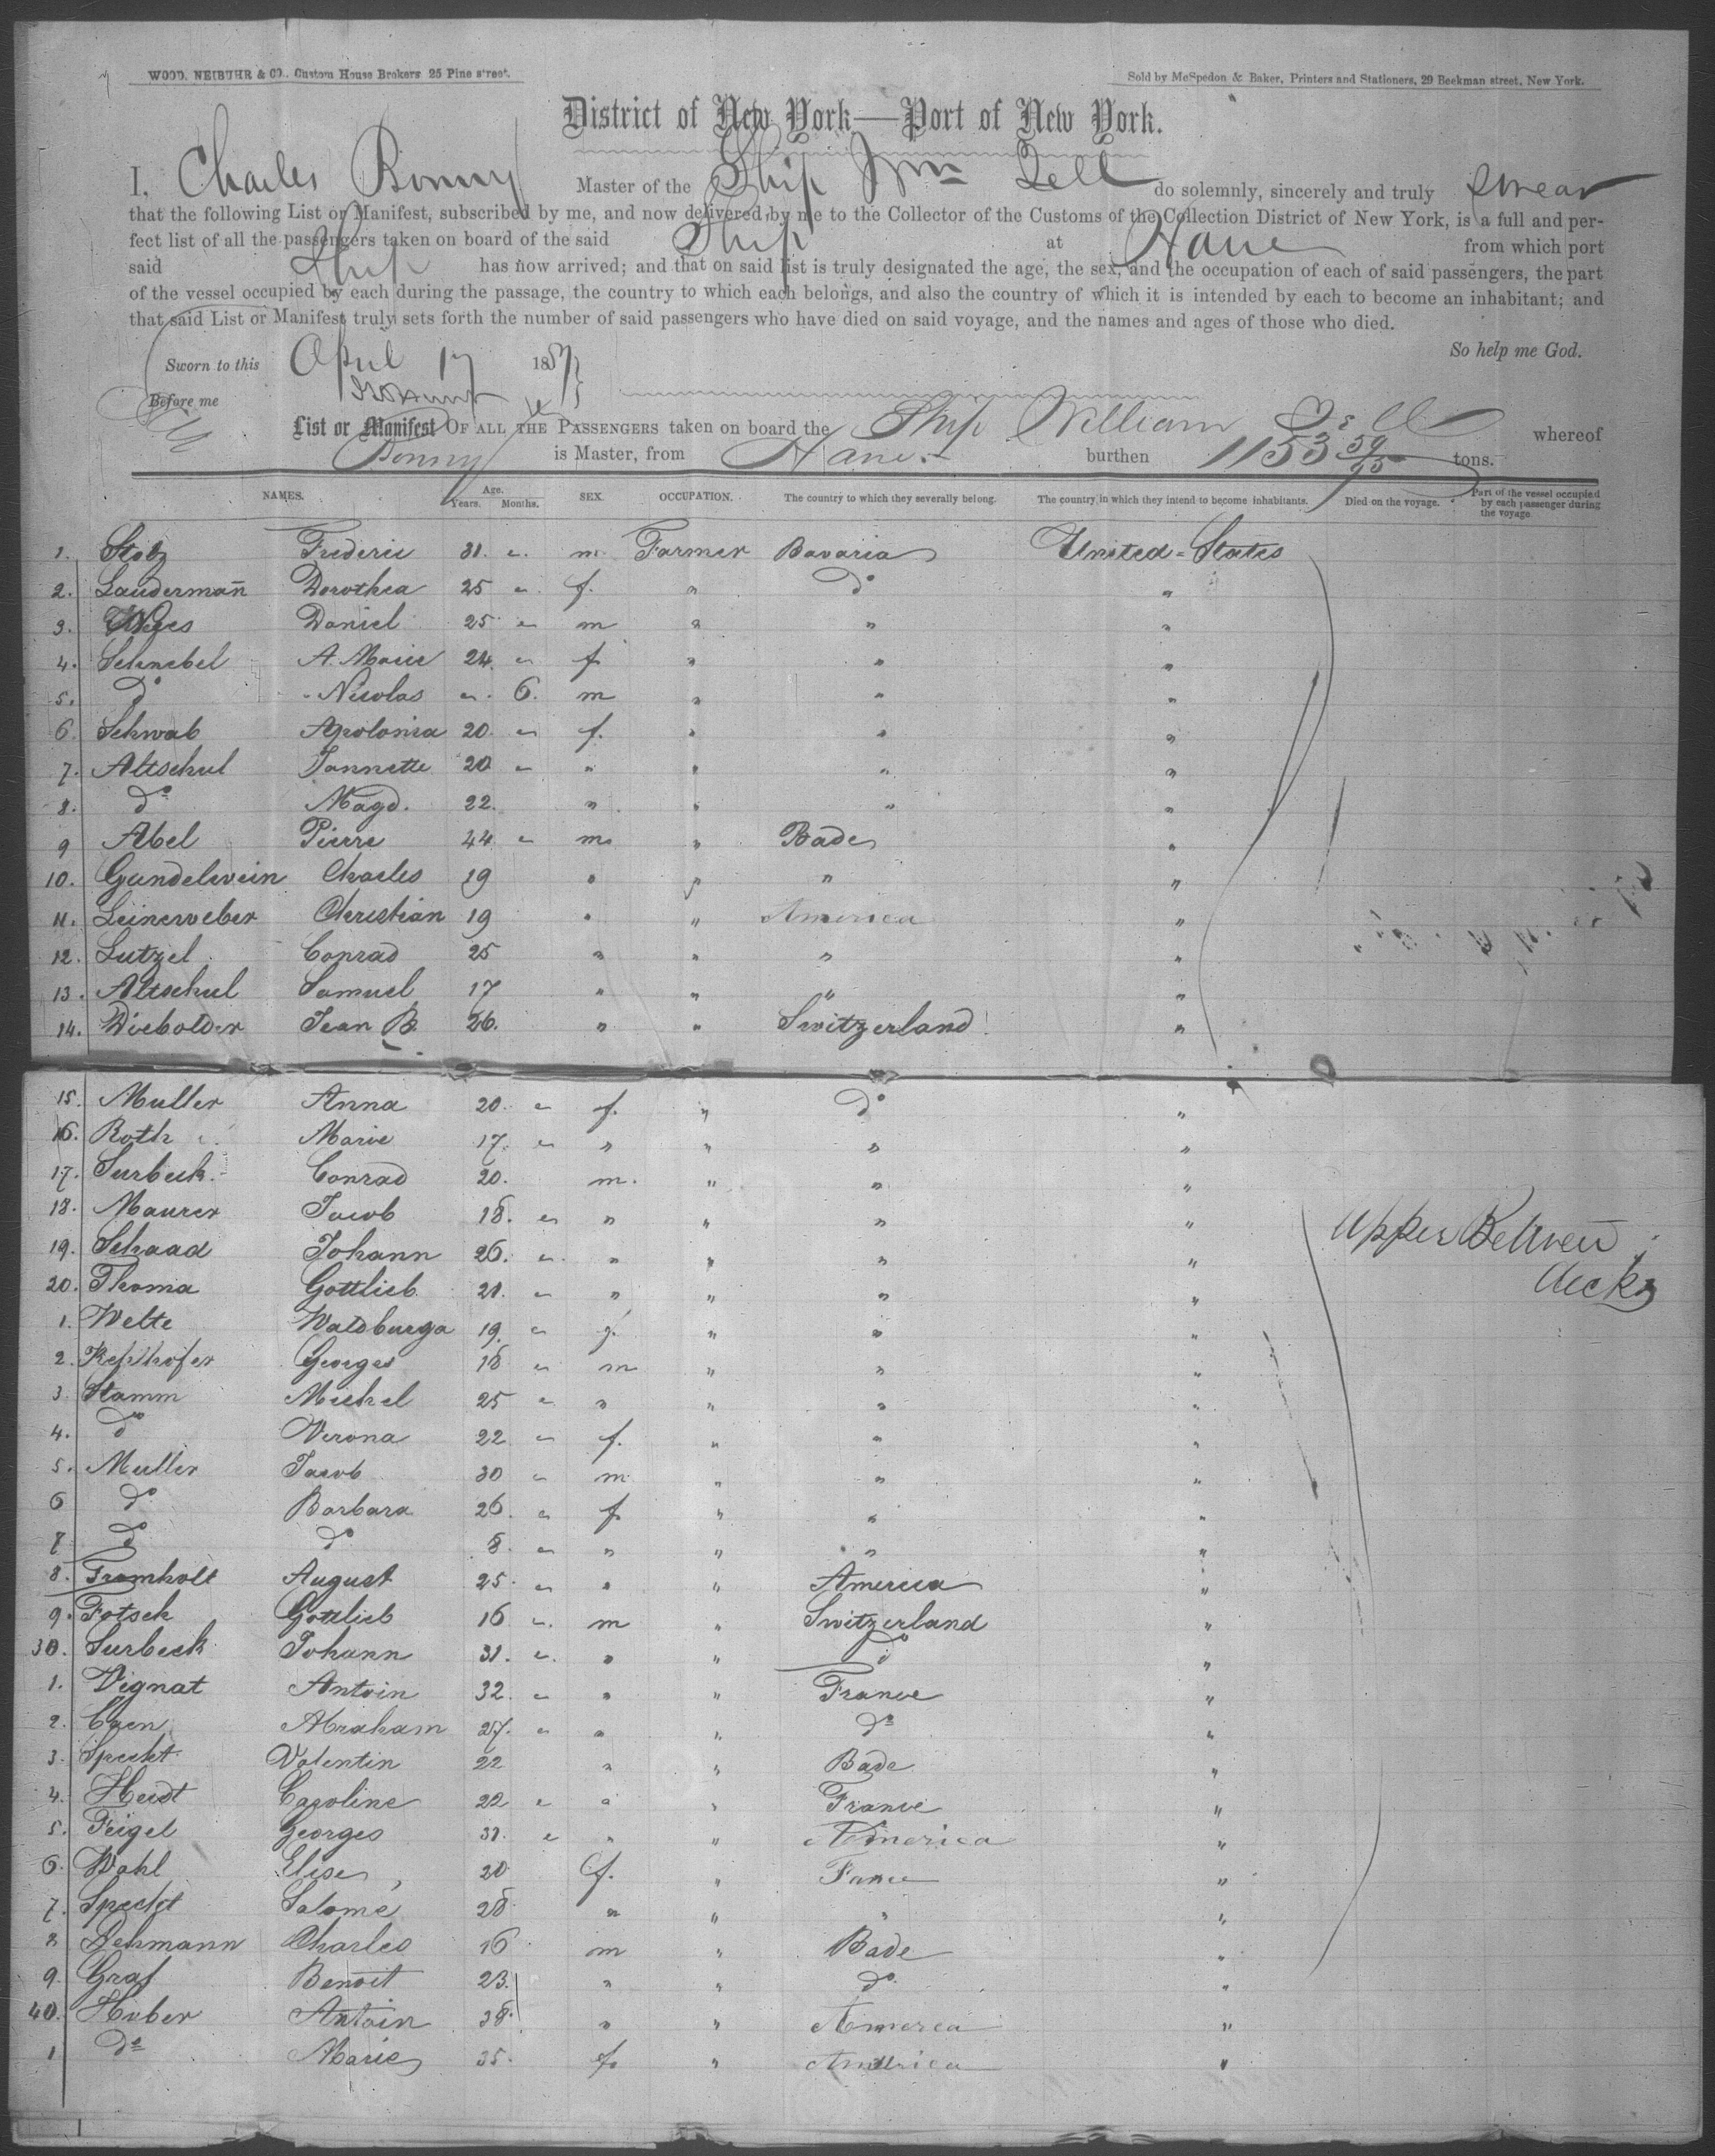 WOOD, NEIBUHR & CO., Custom House Brokers 25 Pine street.
Sold by McSpedon & Baker, Printers and Stationers, 29 Beekman street, New York.
District of New York—Port of New York.
I, Charles Bonny Master of the Ship Wm Tell do solemnly, sincerely and truly swear
that the following List or Manifest, subscribed by me, and now delivered by me to the Collector of the Customs of the Collection District of New York, is a full and per-
fect list of all the passengers taken on board of the said Ship at Havre from which port
said Ship has now arrived; and that on said list is truly designated the age, the sex, and the occupation of each of said passengers, the part
of the vessel occupied by each during the passage, the country to which each belongs, and also the country of which it is intended by each to become an inhabitant; and
that said List or Manifest truly sets forth the number of said passengers who have died on said voyage, and the names and ages of those who died.
So help me God.
Sworn to this April 17 1857
Before me
List or Manifest OF ALL THE PASSENGERS taken on board the Ship William Tell whereof
Bonny is Master, from Havre burthen 1153 59/95 tons.
NAMES. Age. Years. Months. SEX. OCCUPATION. The country to which they severally belong. The country in which they intend to become inhabitants. Died on the voyage. Part of the vessel occupied by each passenger during the voyage.
1. Stolz Frederic 31. " m. Farmer Bavaria United-States
2. Laudermañ Dorothea 25 " f. " do "
3. Daniel 25 " m " " "
4. Schnebel A. Marie 24 " f " " "
5. do Nicolas " 6. m " " "
6. Schwab Apolonia 20. " f. " " "
7. Altschul Jannette 20 " " " " "
8. do Magd. 22. " " " "
9 Abel Pierre 44 " m. " Bade "
10. Gundelwein Charles 19 " " " "
11. Leinerweber Christian 19 " " America "
12. Lutzel Conrad 25 " " " "
13. Altschul Samuel 17 " " " "
14. Diebolder Jean B. 26. " " Switzerland "
15. Muller Anna 20. " f. " do "
16. Roth Marie 17. " " " " "
17. Surbeck Conrad 20. m. " " "
18. Maurer Jacob 18. " " " " "
19. Schaad Johann 26. " " " " "
20. Thoma Gottlieb 21. " " " " "
Upper Between decks
1. Welte Waldburga 19. " f. " " "
2. Georges 18 " m " " "
3. Stamm Michel 25 " " " " "
4. do Verona 22 " f. " " "
5. Muller Jacob 30 " m " " "
6 do Barbara 26. " f. " " "
7 do do 8. " " " " "
8. Fromholt August 25. " " " America "
9. Fotsch Gottlieb 16 " m " Switzerland "
30. Surbeck Johann 31. " " " do "
1. Vignat Antoin 32. " " " France "
2. Caen Abraham 27. " " " do "
3. Specht Valentin 22 " " Bade "
4. Heidt Caroline 22 " " " France "
5. Feigel Georges 31. " " " America "
6. Wahl Elise 20 f. " France "
7. Specht Salomé 28 " " " "
8 Charles 16 m " Bade "
9. Graf Benoit 23. " " do "
40. Huber Antoin 38. " " America "
1 do Marie 35. f. " America "